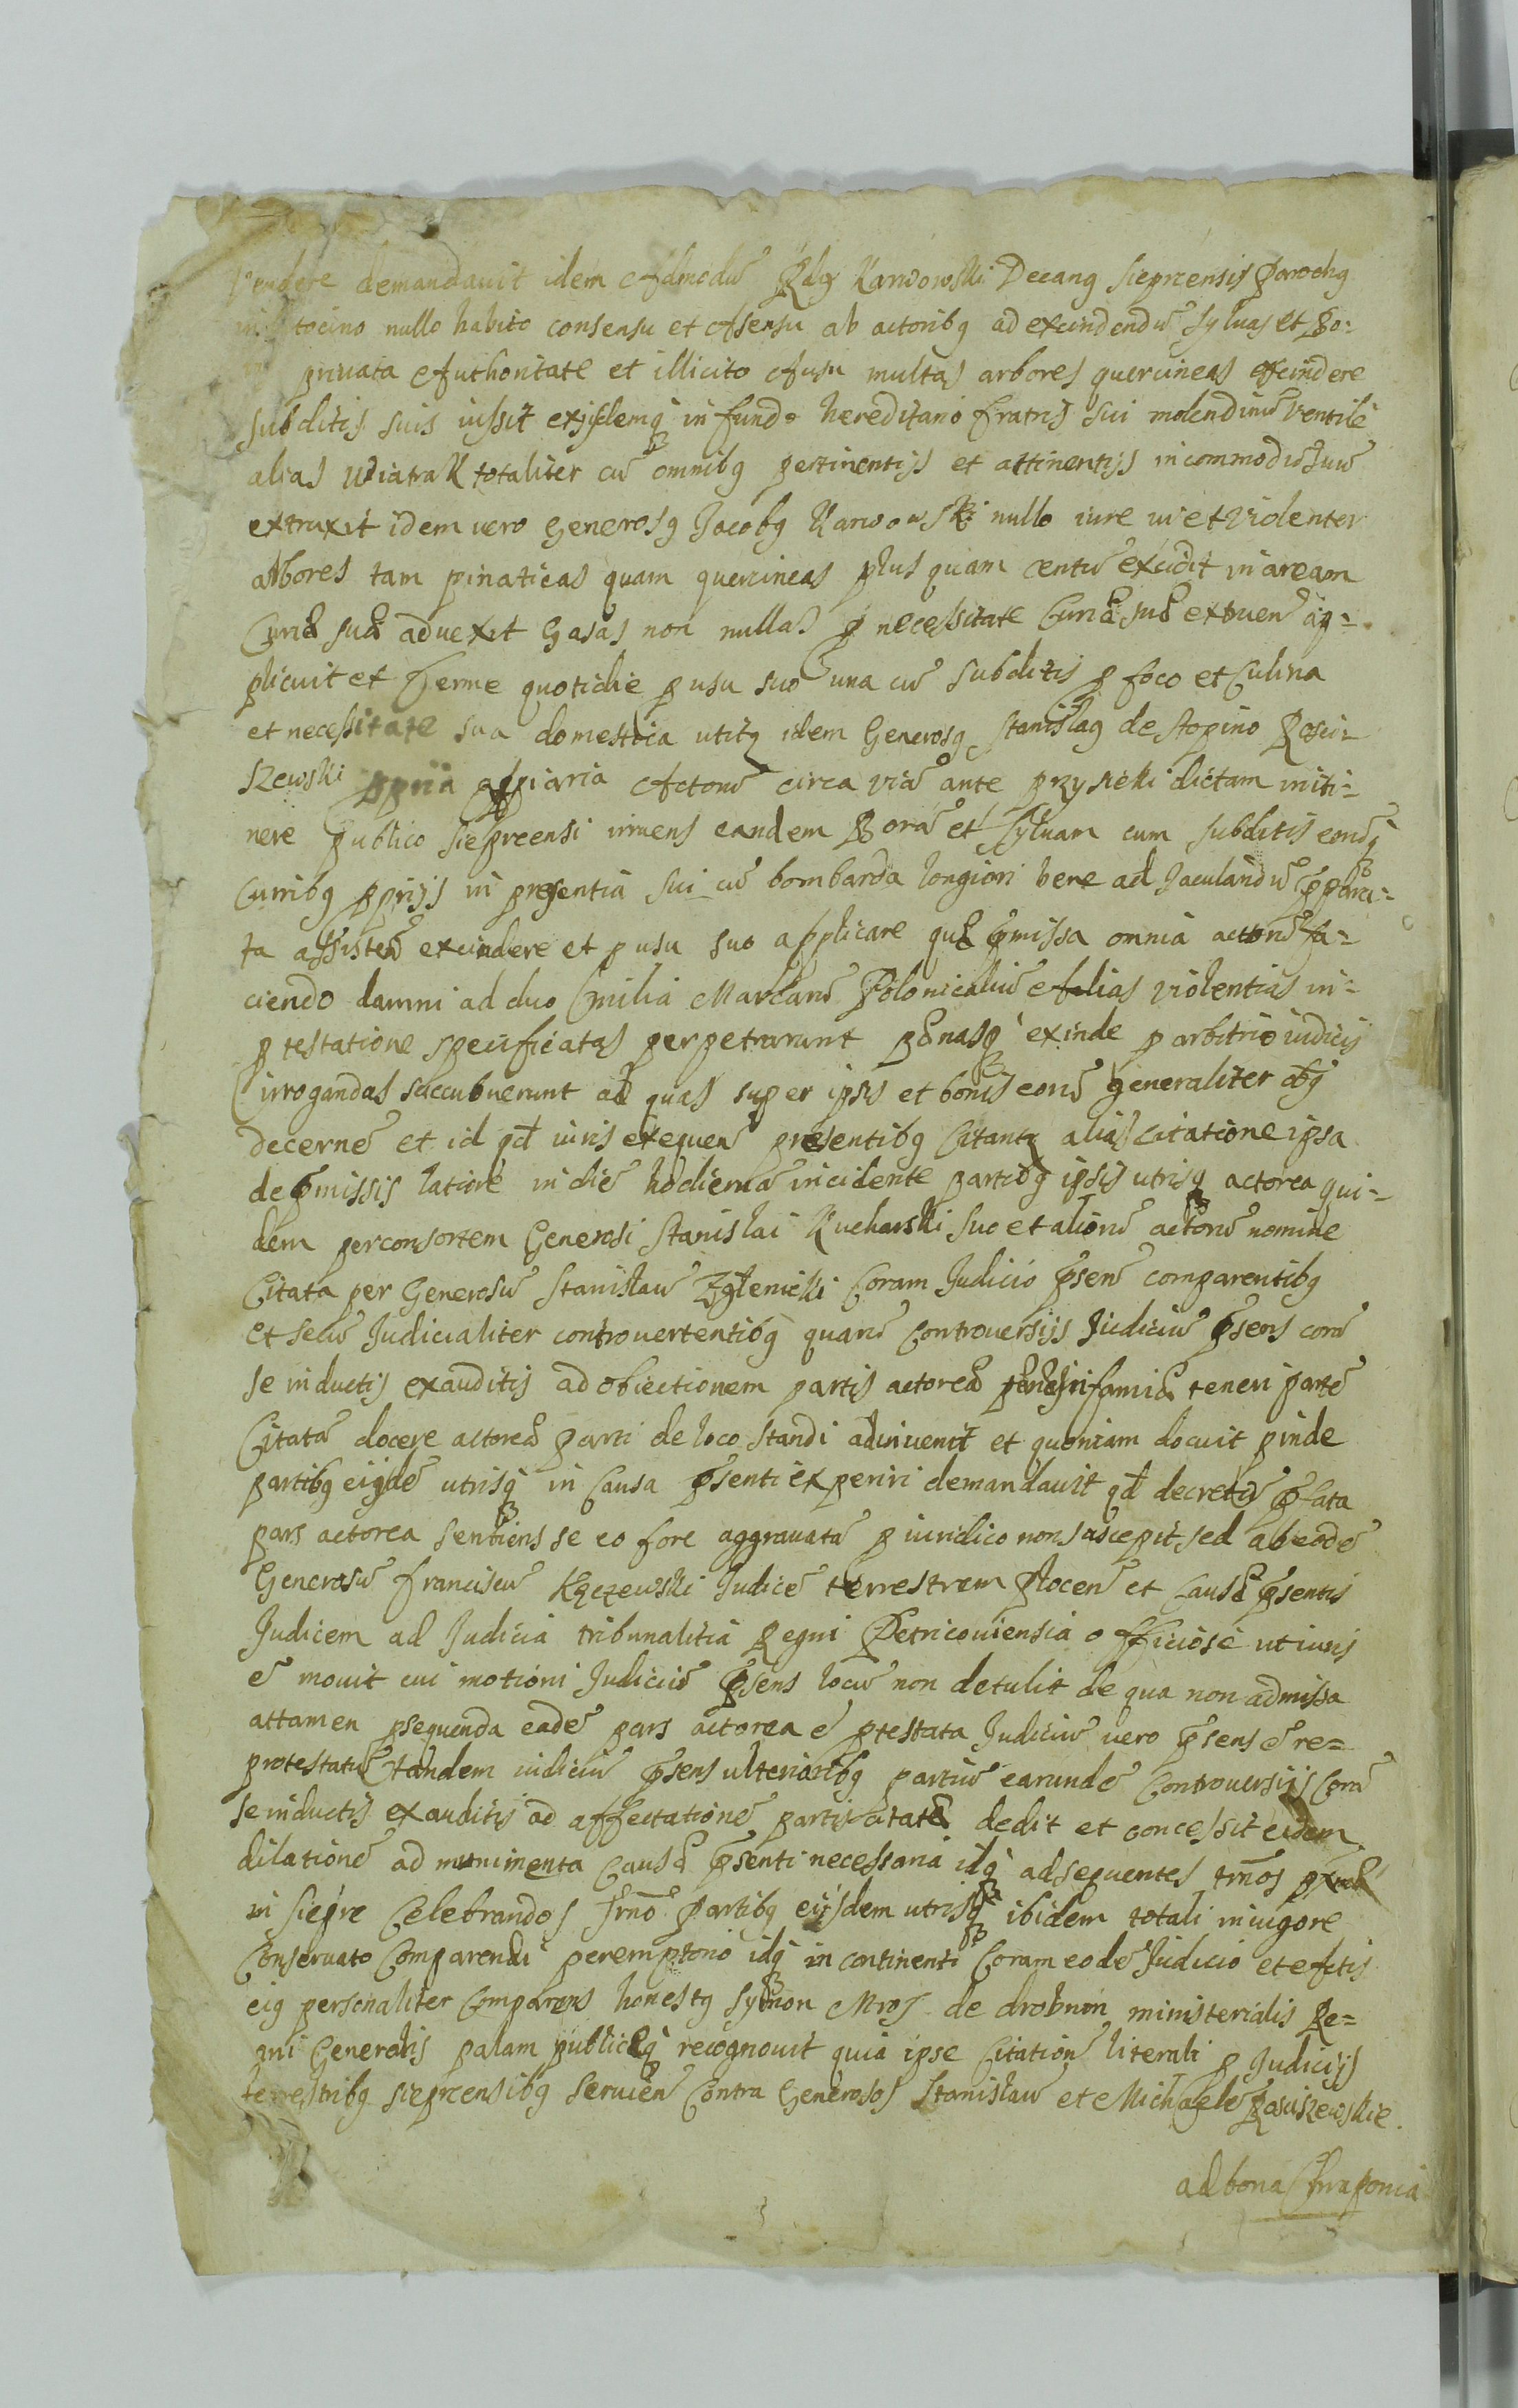 Vendere demandauit idem Admodũ Rdq Karwowski Decanq Sieprcensis Parochq
tocino nullo habito consensu et Asensu ab actoribq ad excindendũ Syluas et Bo-
priuata Authoritate et illicito Ausu multas arbores quercineas excindere
subditis suis iussit exijsdemq in fundo hereditario fratris sui molendinũ Ventile
alias Wiatrak totaliter cũ omnibq pertinentijs et attinentijs in commodũ suũ
extruxit idem vero Generosq Jacobq Karwowski nullo iure vi et violenter
arbores tam pinaticas quam quercineas plus quam centũ excidit in aream
Curię suę aduexit Gasas non nullas p necessitate Curię suę extruen ap-
plicuit et ferme quotidie p usu suo una cũ subditis p foco et Culina
et necessitate sua domestica utitq idem Generosq Stanislaq de Stopino Rosci-
szewski ppria apiaria Actorũ circa viã ante Przysieki dictam in iti-
nere publico Sieprcensi irruens eandem Borã et Syluam cum subditis eorũq
Curribq pprijs in presentia sui cũ bombarda longiori bene ad Jaculandũ pparа-
ta assisteñ excindere et p usu suo applicare quę pmissa omnia actorũ fa-
ciendo damni ad duo Cmilia Marcarũ Polonicaliũ Aalias violentias in
ptestatione specificatas perpetrarunt pęnasq exinde p arbitrio iudicij
irrogandas succubuerunt ad quas super ipsis et bonis eorũ generaliter obq
decernẽ et id qd iuris exequen presentibq Citantq alias Citatione ipsa
de pmissis latiorẽ in diẽ hodiernã incidente partibq ipsis utrisq actorea qui-
dem per consortem Generosi Stanislai Kucharski suo et aliorũ actorũ nomine
Citata per Generosũ Stanislaũ Zglenicki Coram Judicio psen comparentibq
et secũ Judicialiter controuertentibq quarũ Controuersijs Judiciũ psens corã
se inductis exauditis ad obiectionem partis actoreę pęnę infamię teneri partẽ
Citatã docere actoreę parti de loco standi adinuenit et quoniam docuit pinde
partibq eisdẽ utrisq in Causa psenti experiri demandauit qd decretũ plata
pars actorea sentiens se eo fore aggrauatã p iuridico non suscepit sed ab eodẽ
Generosũ Franciscũ Kęczewski Judicẽ terrestrem Plocen et Causę psentis
Judicem ad Judicia tribunalitia Regni Petricouiensia officiosè ut iuris
ẽ mouit cui motioni Judiciũ psens locũ non detulit de qua non admissa
attamen psequenda eadẽ pars actorea ẽ ptestata Judiciũ vero psens ẽ re-
protestatũ tandem iudiciũ psens ulterioribq partiũ earundẽ Controuersijs Corã
se inductis exauditis ad affectationẽ partis citatę dedit et concessit eidem
dilationẽ ad munimenta Causę psenti necessaria idq ad sequentes trños
in Siepre Celebrandos Trño partibq eijsdem utrisq ibidem totali in uigore
Conseruato Comparendi peremptorio idq in continenti Coram eodẽ Judicio et Actis
eiq personaliter Comparens honestq Symon Mros de drobnin ministerialis Re-
gni Generalis palam publicęq recognouit quia ipse Citationẽ literali p Judicijs
terrestribq Sieprcensibq seruien Contra Generosos Stanislaũ et Michaelẽ Rosciszewskie.
ad bona Chraponia